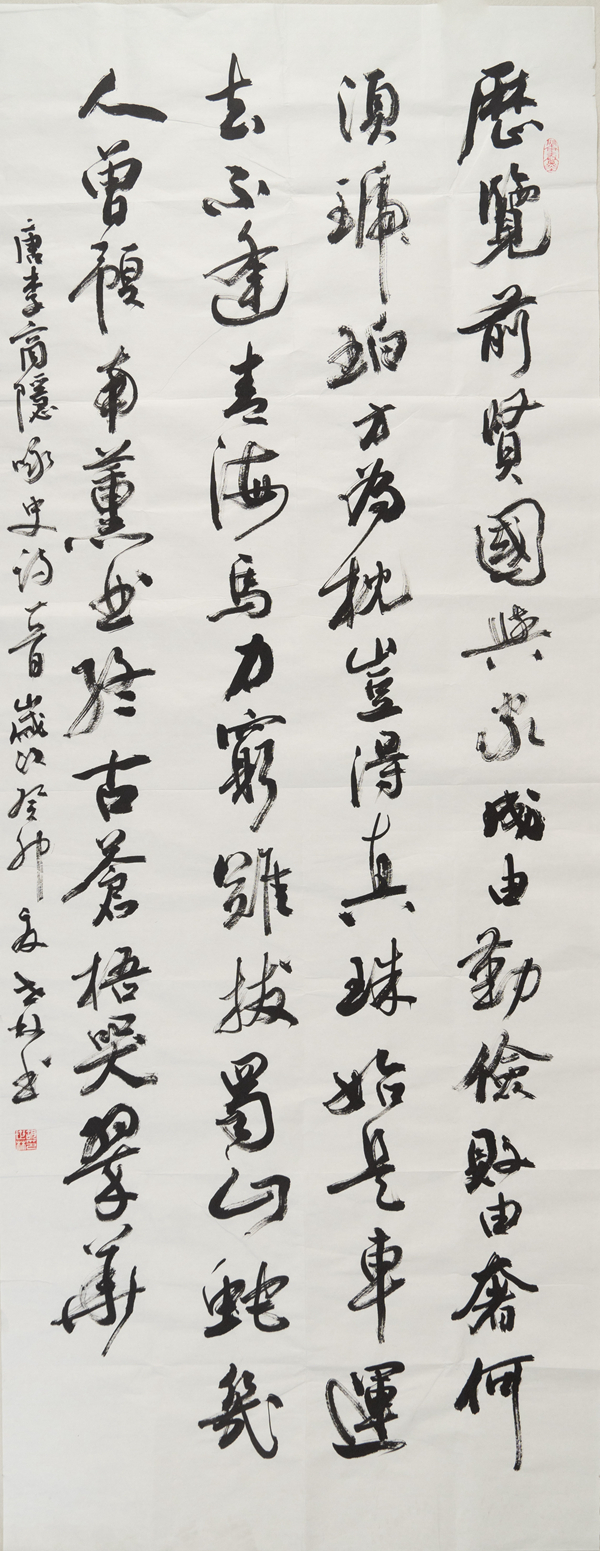 歷覽前賢國與家成由勤儉敗由奢何
須琥珀方為枕豈得真珠始是車運
去不逢青海馬力窮難拔蜀山蛇幾
人曾預南薰曲終古蒼梧哭翠華
唐李商隱咏史诗一首歲次癸卯夏書